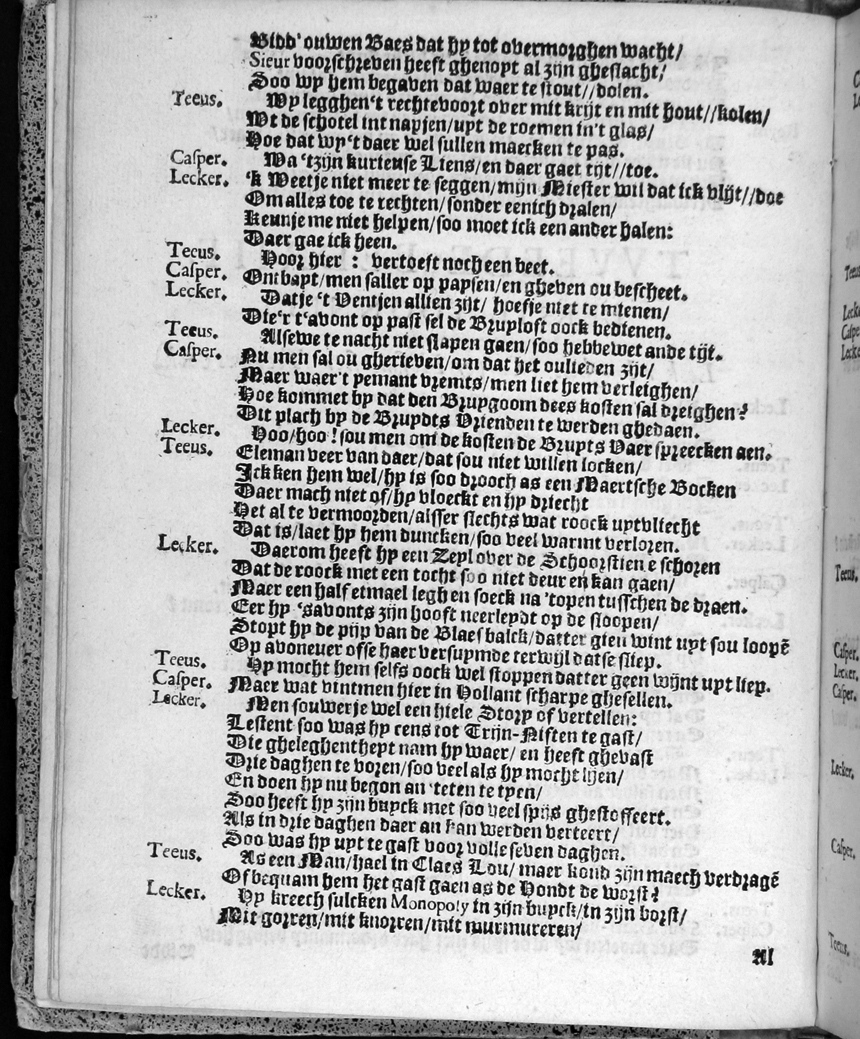 Bidd' ouwen Baes dat hy tot overmorghen wacht/
Sieur voorschreven heeft ghenopt al zijn gheslacht/
Soo wy hem begaven dat waer te stout//dolen.
Teeus. Wy legghen't rechtevoort over mit krijt en mit hout//kolen/
Wt de schotel int napjen/uyt de roemen in't glas/
Hoe dat wy't daer wel sullen maecken te pas.
Casper. Wa 'tzijn kurieuse Liens/en daer gaet tijt//toe.
Lecker. 'k Weetje niet meer te seggen/mijn Miester wil dat ick vlijt//doe
Om alles toe te rechten/sonder eenich dralen/
Keunje me niet helpen/soo moet ick een ander halen:
Daer gae ick heen.
Teeus. Hoor hier : vertoeft noch een beet.
Casper. Ontbayt/men saller op paysen/en gheven ou bescheet.
Lecker. Datje 't Ventjen allien zijt/ hoefje niet te mienen/
Die'r t'avont op past sel de Bruyloft oock bedienen.
Teeus. Alsewe te nacht niet slapen gaen/soo hebbewet ande tijt.
Casper. Nu men sal ou gherieven/om dat het oulieden zijt/
Maer waer't yemant vremts/men liet hem verleighen/
Hoe kommet by dat den Bruygoom dees kosten sal dreighen?
Dit plach by de Bruydts Vrienden te werden ghedaen.
Lecker. Hoo/hoo! sou men om de kosten de Bruyts Vaer spreecken aen.
Teeus. Eleman veer van daer/dat sou niet willen locken/
Ick ken hem wel/hy is soo drooch as een Maertsche Bocken
Daer mach niet of/hy vloeckt en hy driecht
Het al te vermoorden/alsser slechts wat roock uytvliecht
Dat is/laet hy hem duncken/soo veel warmt verloren.
Lecker. Daerom heeft hy een Zeyl over de Schoorstien e schoren
Dat de roock met een tocht soo niet deur en kan gaen/
Maer een half etmael legh en soeck na 'topen tusschen de draen.
Eer hy 'savonts zijn hooft neerleydt op de stoopen/
Stopt hy de pijp van de Blaesbalck/datter gien wint uyt sou loopē
Op avoneuer offe haer versuymde terwijl datse sliep.
Teeus. Hy mocht hem selfs oock wel stoppen datter geen wijnt uyt liep.
Casper. Maer wat vintmen hier in Hollant scharpe ghesellen.
Lecker. Men souwerje wel een hiele Story of vertellen:
Lestent soo was hy eens tot Trijn-Niften te gast/
Die gheleghentheyt nam hy waer/ en heeft ghevast
Drie daghen te voren/soo veel als hy mocht lijen/
En doen hy nu begon an 'teten te tyen/
Soo heeft hy zijn buyck met soo veel spijs ghestoffeert.
Als in drie daghen daer an kan werden verteert/
Soo was hy uyt te gast voor volle seven daghen.
Teeus. As een Man/hael in Claes Lou/ maer kond zijn maech verdragē
Of bequam hem het gast gaen as de Hondt de worst?
Lecker. Hy kreech sulcken Monopoly in zijn buyck/in zijn borst/
Mit gorren/mit knorren/mit murmureren/
Al